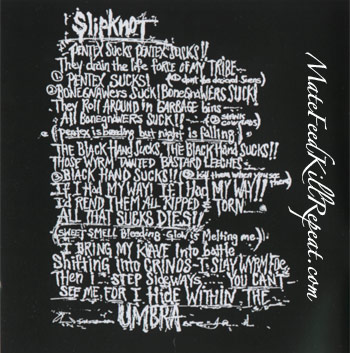 Slipknot
PENTEX SUCKS PENTEX SUCKS!!
They drain the life FORCE OF MY TRIBE
① PENTEX SUCKS!
② BONEGNAWERS SUCK! BONEGNAWERS SUCK!
They Roll AROUND in GARBAGE bins
All BONEGNAWERS SUCK!!
(pentex is bleeding but night is falling)
THE BLACK HAND SUCKS, THE BLACK HAND SUCKS!!
THOSE WYRM TAINTED BASTARD LEECHES
③ BLACK HAND SUCKS!! (kill them when you see them)
If I HAd MY WAY! If I HAd MY WAY!!
I'd REND THEM ALL RIPPED & TORN
ALL THAT SUCKS DIES!!
(SWEET SMELL Bleeding Glow is Melting me.)
I BRING MY KLAIVE Into battle
Shifting into CRINOS I SLAY WYRM FOE
Then I STEP SidewAYS... YOU CAN'T
SEE ME, FOR I HIDE WITHIN THE
UMBRA
MateFeedKillRepeat.com